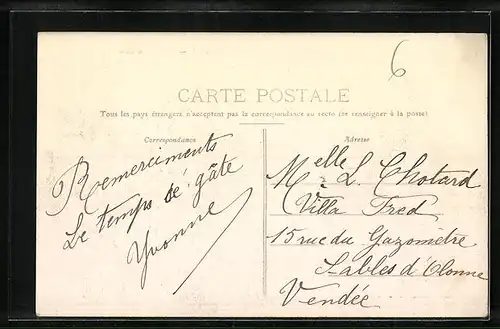 6
CARTE POSTALE
Tous les pays étrangers n'acceptent pas la correspondance au recto (se renseigner à la poste)
Correspondance
Remerciments
Le temps sé gâte
Yvonne
Adresse
Melle L. Chotard
Villa Fred
15 rue du Gazomètre
Sables d'Olonne
Vendée